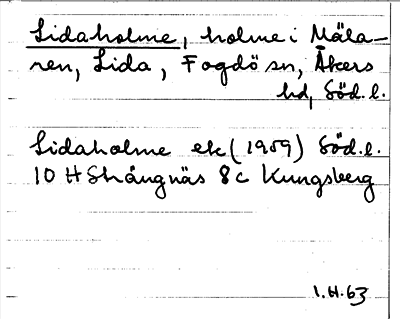 Lidaholme, holme i Mäla-
ren, Lida, Fogdö sn, Åkers
hd, Söd.l.
Lidaholme ek (1959) Söd.l.
10 H Strängnäs 8c Kungsberg
1.H.63